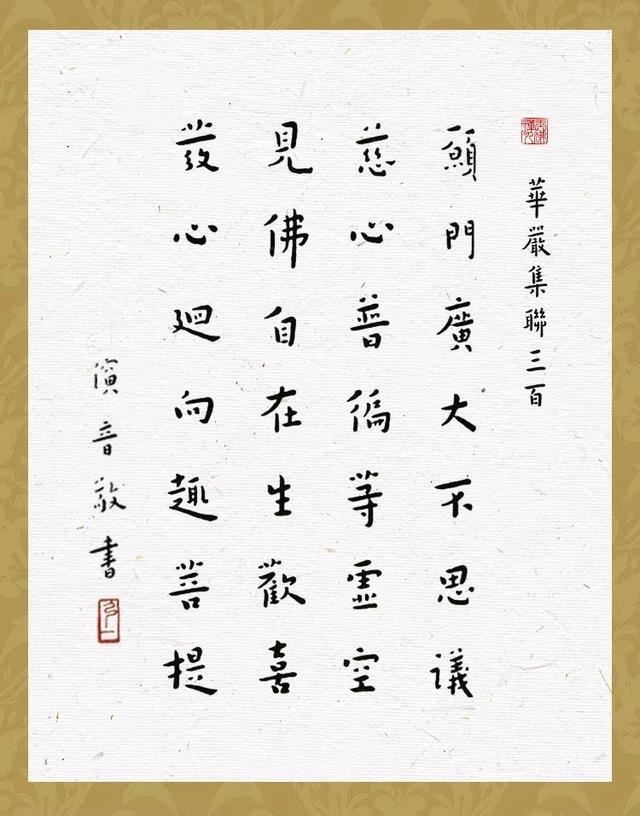 華嚴集聯三百
願門廣大不思議
慈心普徧等虛空
見佛自在生歡喜
發心廻向趣菩提
演音敬書
弘一